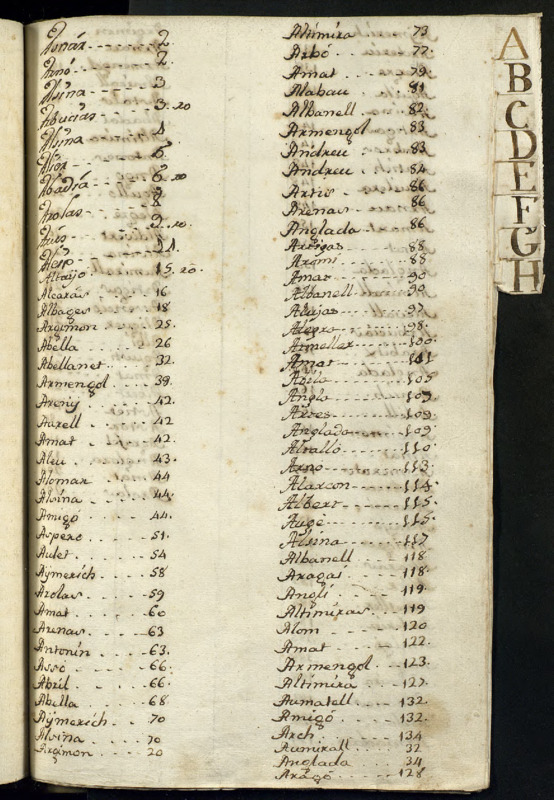 Arnó 2.
Alsina 3
Abucias 3.20
Alsina 4
Abadia 6.20
Arolas 8
Alcaras 16
Albages 18
Argimon 25.
Abella 26
Abellanet 32.
Armengol 39.
Areny 42.
Aurell 42
Amat 42.
Aleu 43.
Alomar 44
Alsina 44.
Amigó 44.
Aspero 51.
Aulet 54
Aÿmerich 58
Arolas 59
Amat 60
Arenas 63
Antonin 63.
Assó 66.
Abril 66.
Abella 68
Aÿmerich 70
Alsina 70
Argimon 20
Altimira 73
Arbó 77.
Amat 79.
Alabau 81
Albanell 82.
Armengol 83
Andreu 83
Andreu 84
Artis 86
Arenas 86
Anglada 86.
Artigas 88
Argmi 88
Amat 90
Albanell 90
Alegre 98.
Armeller 100.
Amat 101
Anglada 109.
Altalló 110
Arno 113.
Alarcon 114.
Albert 115.
Auge 115.
Alsina 117
Albanell 118
Aragai 118.
Angli 119.
Altimiras 119
Alom 120
Amat 122.
Armengol 123.
Altimira 127.
Aumatell 132.
Amigó 132.
Arch 134
Aumirall 32
Anglada 34
Aragó 128
A
B
C
D
E
F
G
H